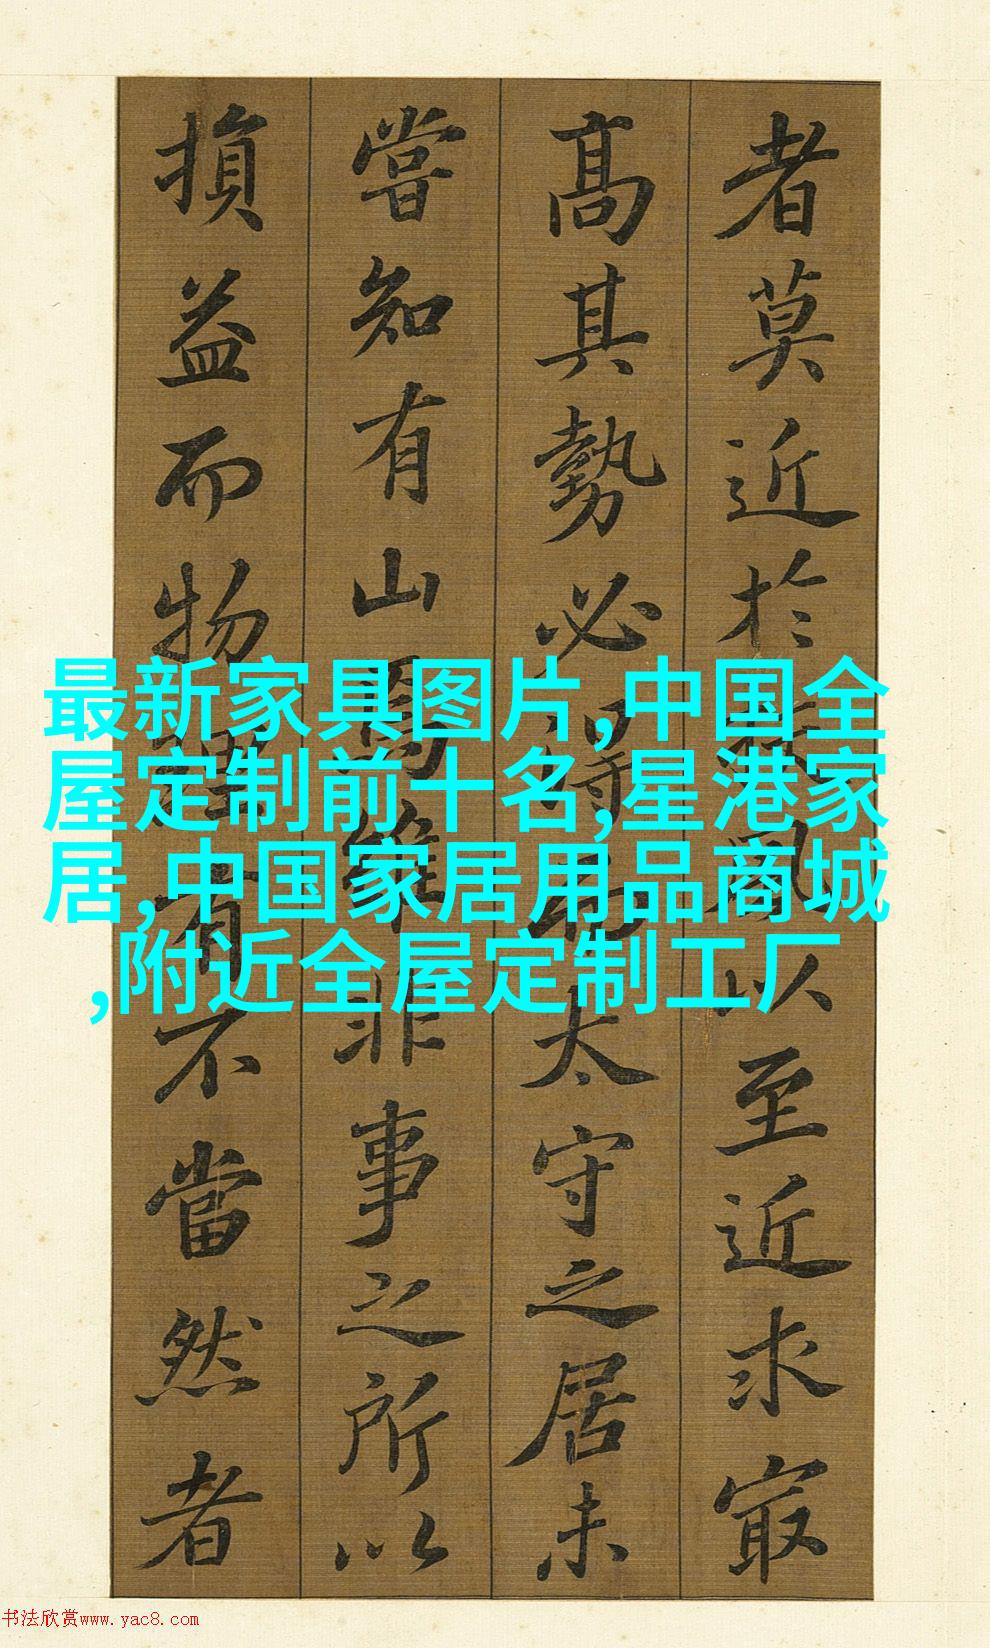 者莫近於扶風以至近求㝡
高其勢必得而太守之居未
嘗知有山焉雖非事之所以
損益而物理有不當然者
最新家具图片,中国全
屋定制前十名,星港家
居,中国家居用品商城
,附近全屋定制工厂
书法欣赏www.yac8.com